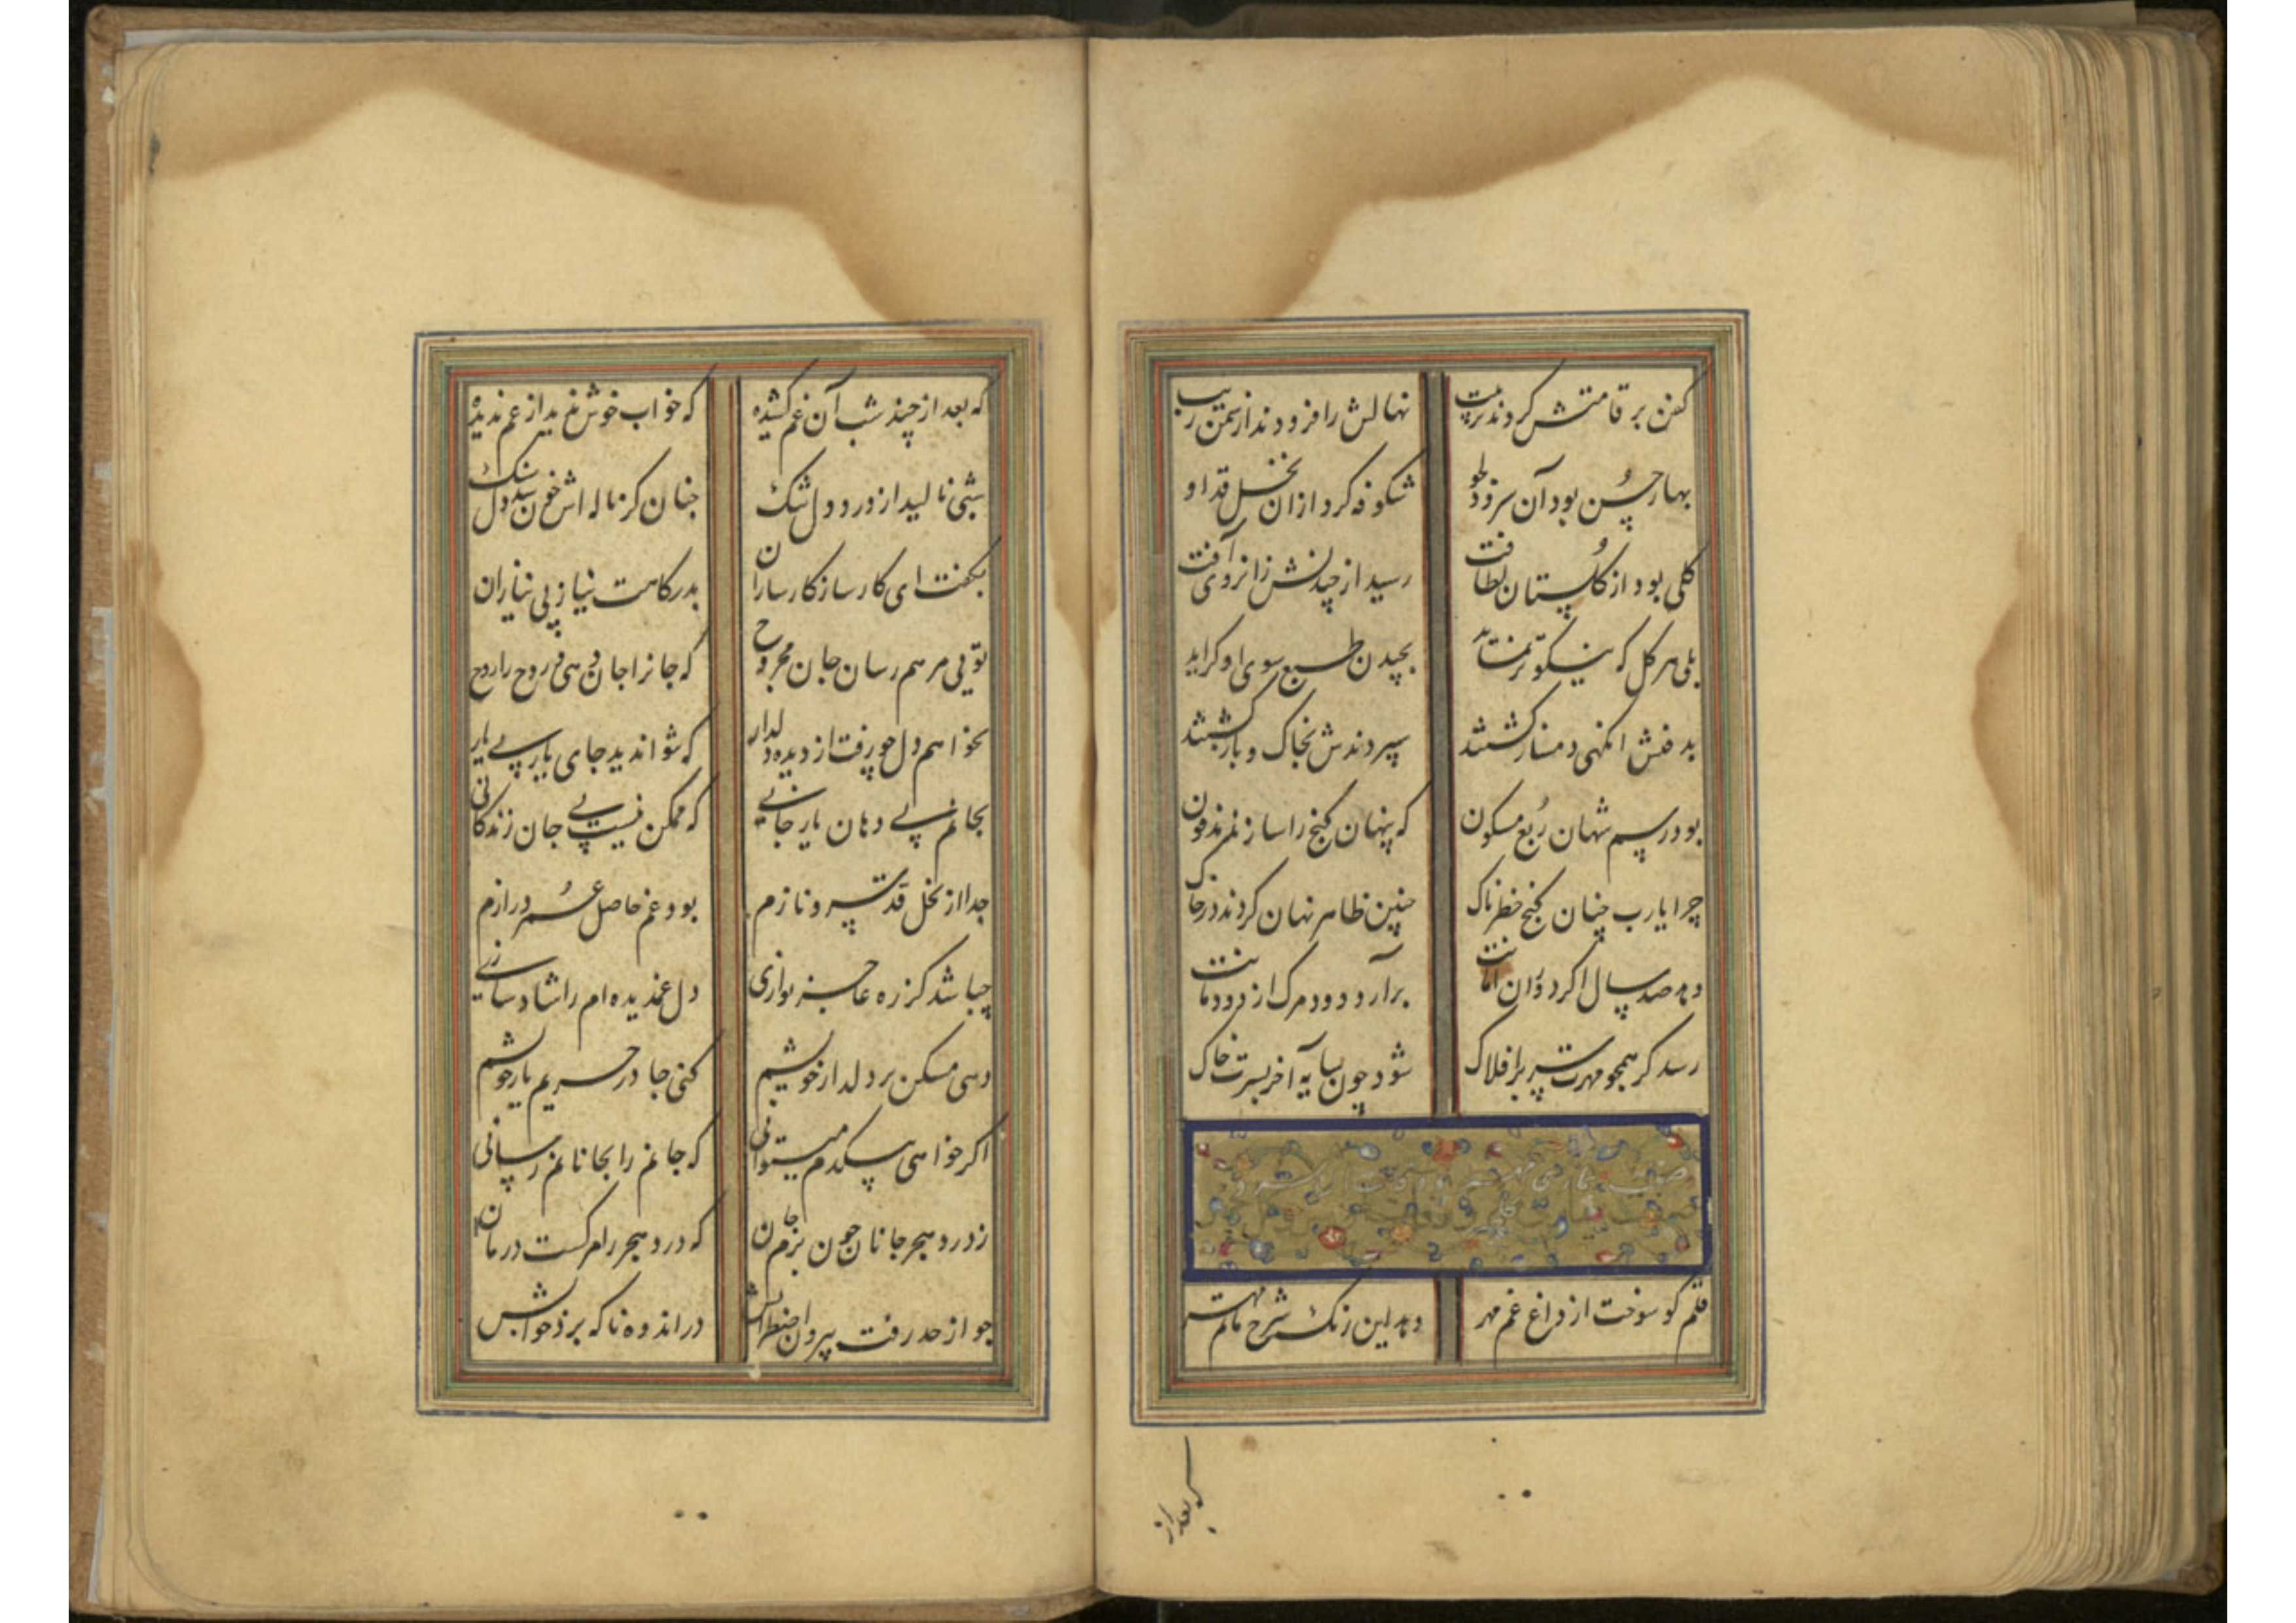 کفن بر قامتش کردند ترتیب
نهالش را فزودند از سمن زیب
بهار حسن بود آن سرو دلجو
شکوفه کرد ازان نخل قد او
گلی بود از گلستان لطافت
رسید از چیدنش زانروی آفت
بلی هر گل که نیکوتر نماید
بچیدن طبع سوی او گراید
بدفنش انگهی دمساز گشتند
سپردندش بخاک و باز گشتند
بود رسم شهان ربع مسکون
که پنهان گنج را سازند مدفون
چرا یارب چنان گنج خطرناک
چنین ظاهر نهان کردند در خاک
دهد صد سال اگر دوران امانت
برآرد دود مرگ از دودمانت
رسد گر همچو مهرت سر بر افلاک
شود چون سایه آخر بسترت خاک
قلم کو سوخت از داغ غم مهر
دهد این رنگ شرح ماتم مهر
که بعد از
که بعد از چند شب آن غم کشیده
که خواب خوش ندید از غم ندیده
شبی نالید از درد دل تنگ
چنان کز ناله اش خون شد دل سنگ
بگفت ای کارساز کارسازان
بدرگاهت نیاز بی نیازان
تویی مرهم رسان جان مجروح
که جانرا جان دهی و روح را روح
نخواهم دل چو رفت از دیده دلدار
که نتواند دید جای یار بی یار
نجانم بی دهان یار جانی
که ممکن نیست بی جان زندگانی
جدا از نخل قد سرو نازم
بود غم حاصل عمر درازم
چه باشد کز ره عاجز نوازی
دل غمدیده ام را شاد سازی
دهی مسکن بر دلدار خویشم
کنی جا در حریم یار خویشم
اگر خواهی بیکدم میتوانی
که جانم را بجانانم رسانی
ز درد هجر جانان چون برم جان
که درد هجر را مرگست درمان
چو از حد رفت بیرون اضطرابش
در اندوه ناگه برد خوابش